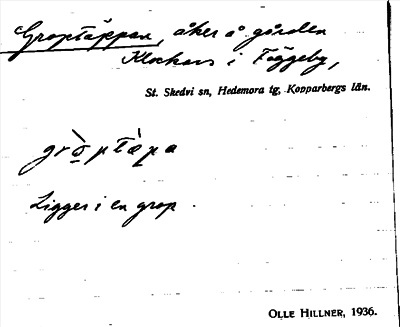 Groptäppan, åker å gården
Klockars i Fäggeby,
St. Skedvi sn, Hedemora tg, Kopparbergs län.
grò̱ptä̀pa
Ligger i en grop.
OLLE HILLNER, 1936.